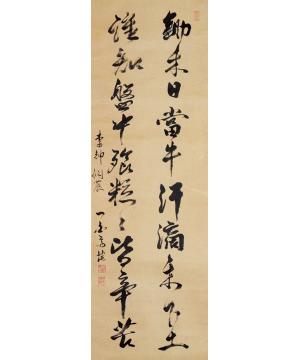 鋤禾日當午汗滴禾下土
誰知盤中飧粒〻皆辛苦
李紳憫農